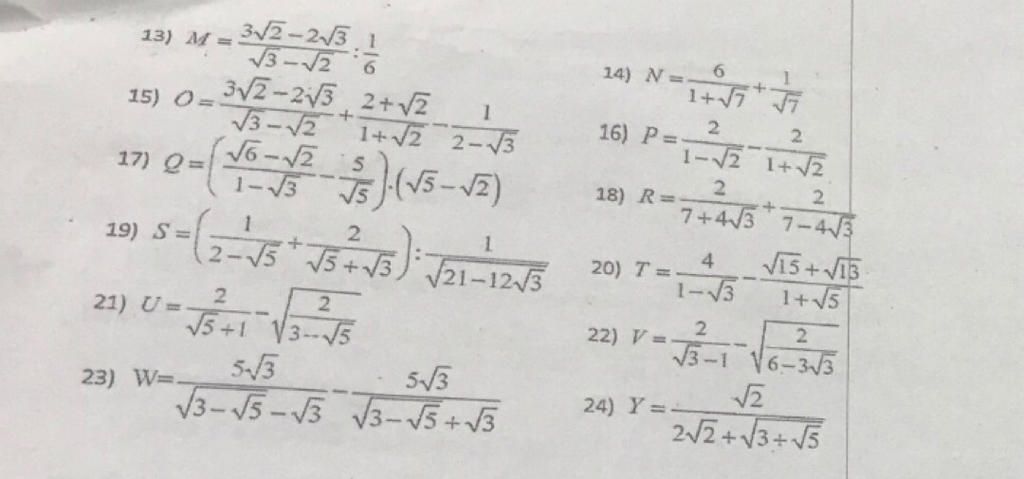 13) M = (3√2 − 2√3)/(√3 − √2) : 1/6
14) N = 6/(1+√7) + 1/√7
15) O = (3√2 − 2√3)/(√3 − √2) + (2+√2)/(1+√2) − 1/(2−√3)
16) P = 2/(1−√2) − 2/(1+√2)
17) Q = ((√6 − √2)/(1−√3) − 5/√5).(√5 − √2)
18) R = 2/(7+4√3) + 2/(7−4√3)
19) S = (1/(2−√5) + 2/(√5+√3)) : 1/√(21−12√3)
20) T = 4/(1−√3) − (√15+√13)/(1+√5)
21) U = 2/(√5+1) − √(2/(3−√5))
22) V = 2/(√3−1) − √(2/(6−3√3))
23) W= 5√3/(√(3−√5) − √3) − 5√3/(√(3−√5) + √3)
24) Y = √2/(2√2 + √(3+√5))